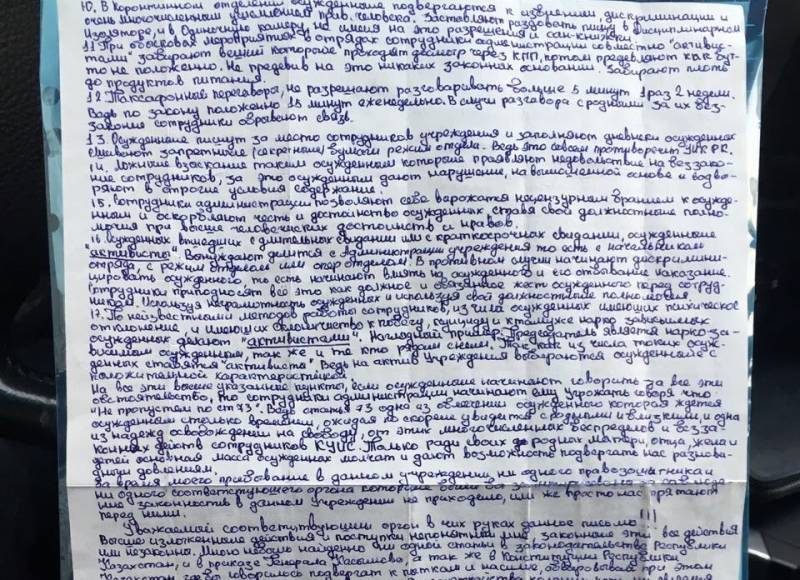 10. В коронтинном отделении осужденные подвергаются к избиении, дискриминации и
очень многочисленным ущемлением прав. человека. Заставляют раздовать пищу в Дисциплинарном
Изоляторе, и в Одиночную камеру, не имея на это разрешения и сан-книжки.
11 При обысковых мероприятиях в отрядах сотрудники администрации совместно "активис-
тами" забирают вещий которое проходят досмотр через КПП, потом предевляют как буд-
то не положенно. Не предевив на это никаких законных основании. Забирают плоть
до продуктов питания.
12. Таксафонные переговора, не разрешают разговаривать больше 5 минут 1 раз 2 недели.
Ведь по закону положенно 15 минут еженедельно. В случи разговора с родными за их без-
законие сотрудники обрывают связь.
13. Осужденные пишут за место сотрудников учреждения и заполняют дневники осужденных
сшивают запретные (секретные) бумаги режим отдела. Ведь это совсем противоречит УИК РК.
14. Ложные взыскания таким осужденным которые праявляют недовольствие на беззако-
ние сотрудников, за это осужденным дают нарушение, на вымышленной основе и водво-
ряют в строгие условия содержание.
15. Сотрудники администраций позволяют себе варожатся нецензурным бранием к осужде-
нным и оскорбляют честь и достоинство осужденных ставя свои должностные полно-
мочия при высше человеческих достоинств и нравов.
16. осужденных вышедших с длительных свидании или с краткосрочных свидании, осужденные
"активисты" Вонуждают делится с Администрации учреждения то есть с начальникам
отряда, с режим отделом или опер отделом. В противном случи начинают дискримини-
цировать осужденного, то есть начинают влиять на осужденного и его отбывание наказание.
Сотрудники приподносят всё это как должное и обязанное жест осужденного перед сотруд-
ником. Используя неграмотность осужденных и используя свой должностные полномочия
17. По неизвестными методов работы сотрудников, из числа осужденных имеющих психическое
отклонение, и имеющих склоничество к побегу, суициду и так же нарко зависимых
осужденных делают "активистами". Наглядный пример: Председатель является нарко-за-
висимым осужденным, так же и те кто рядом с ним. Так же из числа таких осуж-
денных ставятся "активиста". Ведь на актив Учреждения выбираются осужденные с
положительной характеристикой.
На все эти высше указанные пункты, если осужденные начинают говорить за все эти
обстоятельство, то сотрудники администраций начинают ему угрожать говоря что
"Не пропустем по ст 73". Ведь статья 73 одна из облегчении осужденного которая ждется
осужденным столько времении, ожидая по скорее увидется с родными и близкими, и одна
из надежд освобождении на свободу, от этих многочисленных беспределов и безза-
конных действ сотрудников КУИС. Только ради своих родных матери, отца, жена и
детей основная масса осужденных молчат и дают возможность подвергать нас разнови-
дным довлениям.
За время моего прибование в данном учреждении, ни одного правозащитника и
ни одного соответствующего органа которые были бы за соблюде-
нию законности в данном учреждении не приходило, или же просто нас прятают
перед ними.
Уважаемый соответствующий орган в чих руках данное письмо!!!
Высше изложенные действия и поступки непонятны мне, законные эти все действия
или незаконно. Мною небыло найденно ни одной статьи в законодательстве Республики
Казахстан, и в приказе Генерала Касымова, а так же в Конституции Республики
Казахстан где бы говорилось подвергать к пыткам и насилие, при этом